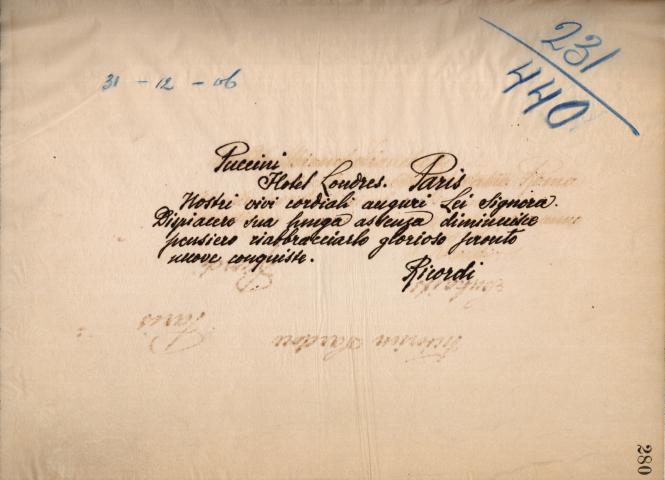 31 - 12 - 06
231
440
Puccini
Hotel Londres. Paris
Nostri vivi cordiali auguri Lei Signora.
Dispiacere sua lunga assenza diminuisce
pensiero riabbracciarlo glorioso pronto
nuove conquiste.
Ricordi
Paris
Victorien Sardou
280